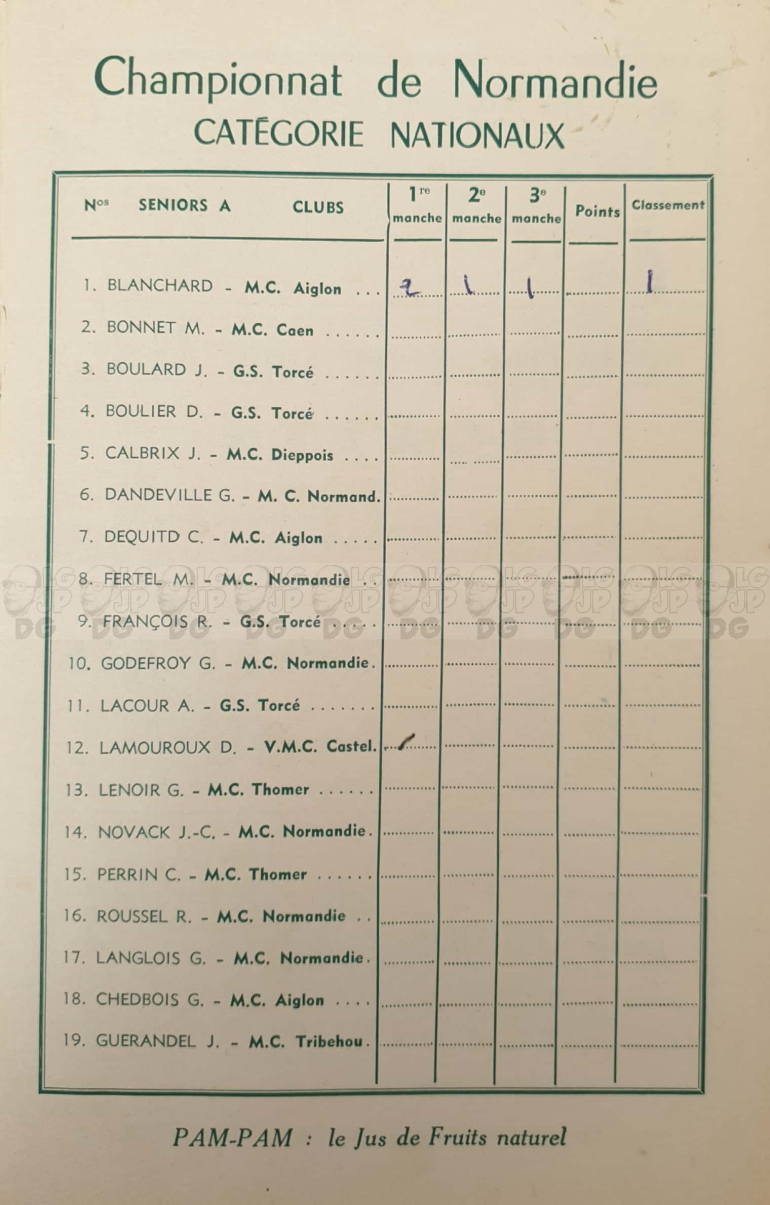 Championnat de Normandie
CATÉGORIE NATIONAUX
Nos SENIORS A CLUBS 1re manche 2e manche 3e manche Points Classement
1. BLANCHARD - M.C. Aiglon ... 2 1 1 1
2. BONNET M. - M.C. Caen ......
3. BOULARD J. - G.S. Torcé ......
4. BOULIER D. - G.S. Torcé ......
5. CALBRIX J. - M.C. Dieppois ....
6. DANDEVILLE G. - M. C. Normand.
7. DEQUITD C. - M.C. Aiglon .....
8. FERTEL M. - M.C. Normandie ..
9. FRANÇOIS R. - G.S. Torcé .....
10. GODEFROY G. - M.C. Normandie.
11. LACOUR A. - G.S. Torcé .......
12. LAMOUROUX D. - V.M.C. Castel. 1
13. LENOIR G. - M.C. Thomer ......
14. NOVACK J.-C. - M.C. Normandie.
15. PERRIN C. - M.C. Thomer ......
16. ROUSSEL R. - M.C. Normandie ..
17. LANGLOIS G. - M.C. Normandie.
18. CHEDBOIS G. - M.C. Aiglon ....
19. GUERANDEL J. - M.C. Tribehou.
PAM-PAM : le Jus de Fruits naturel